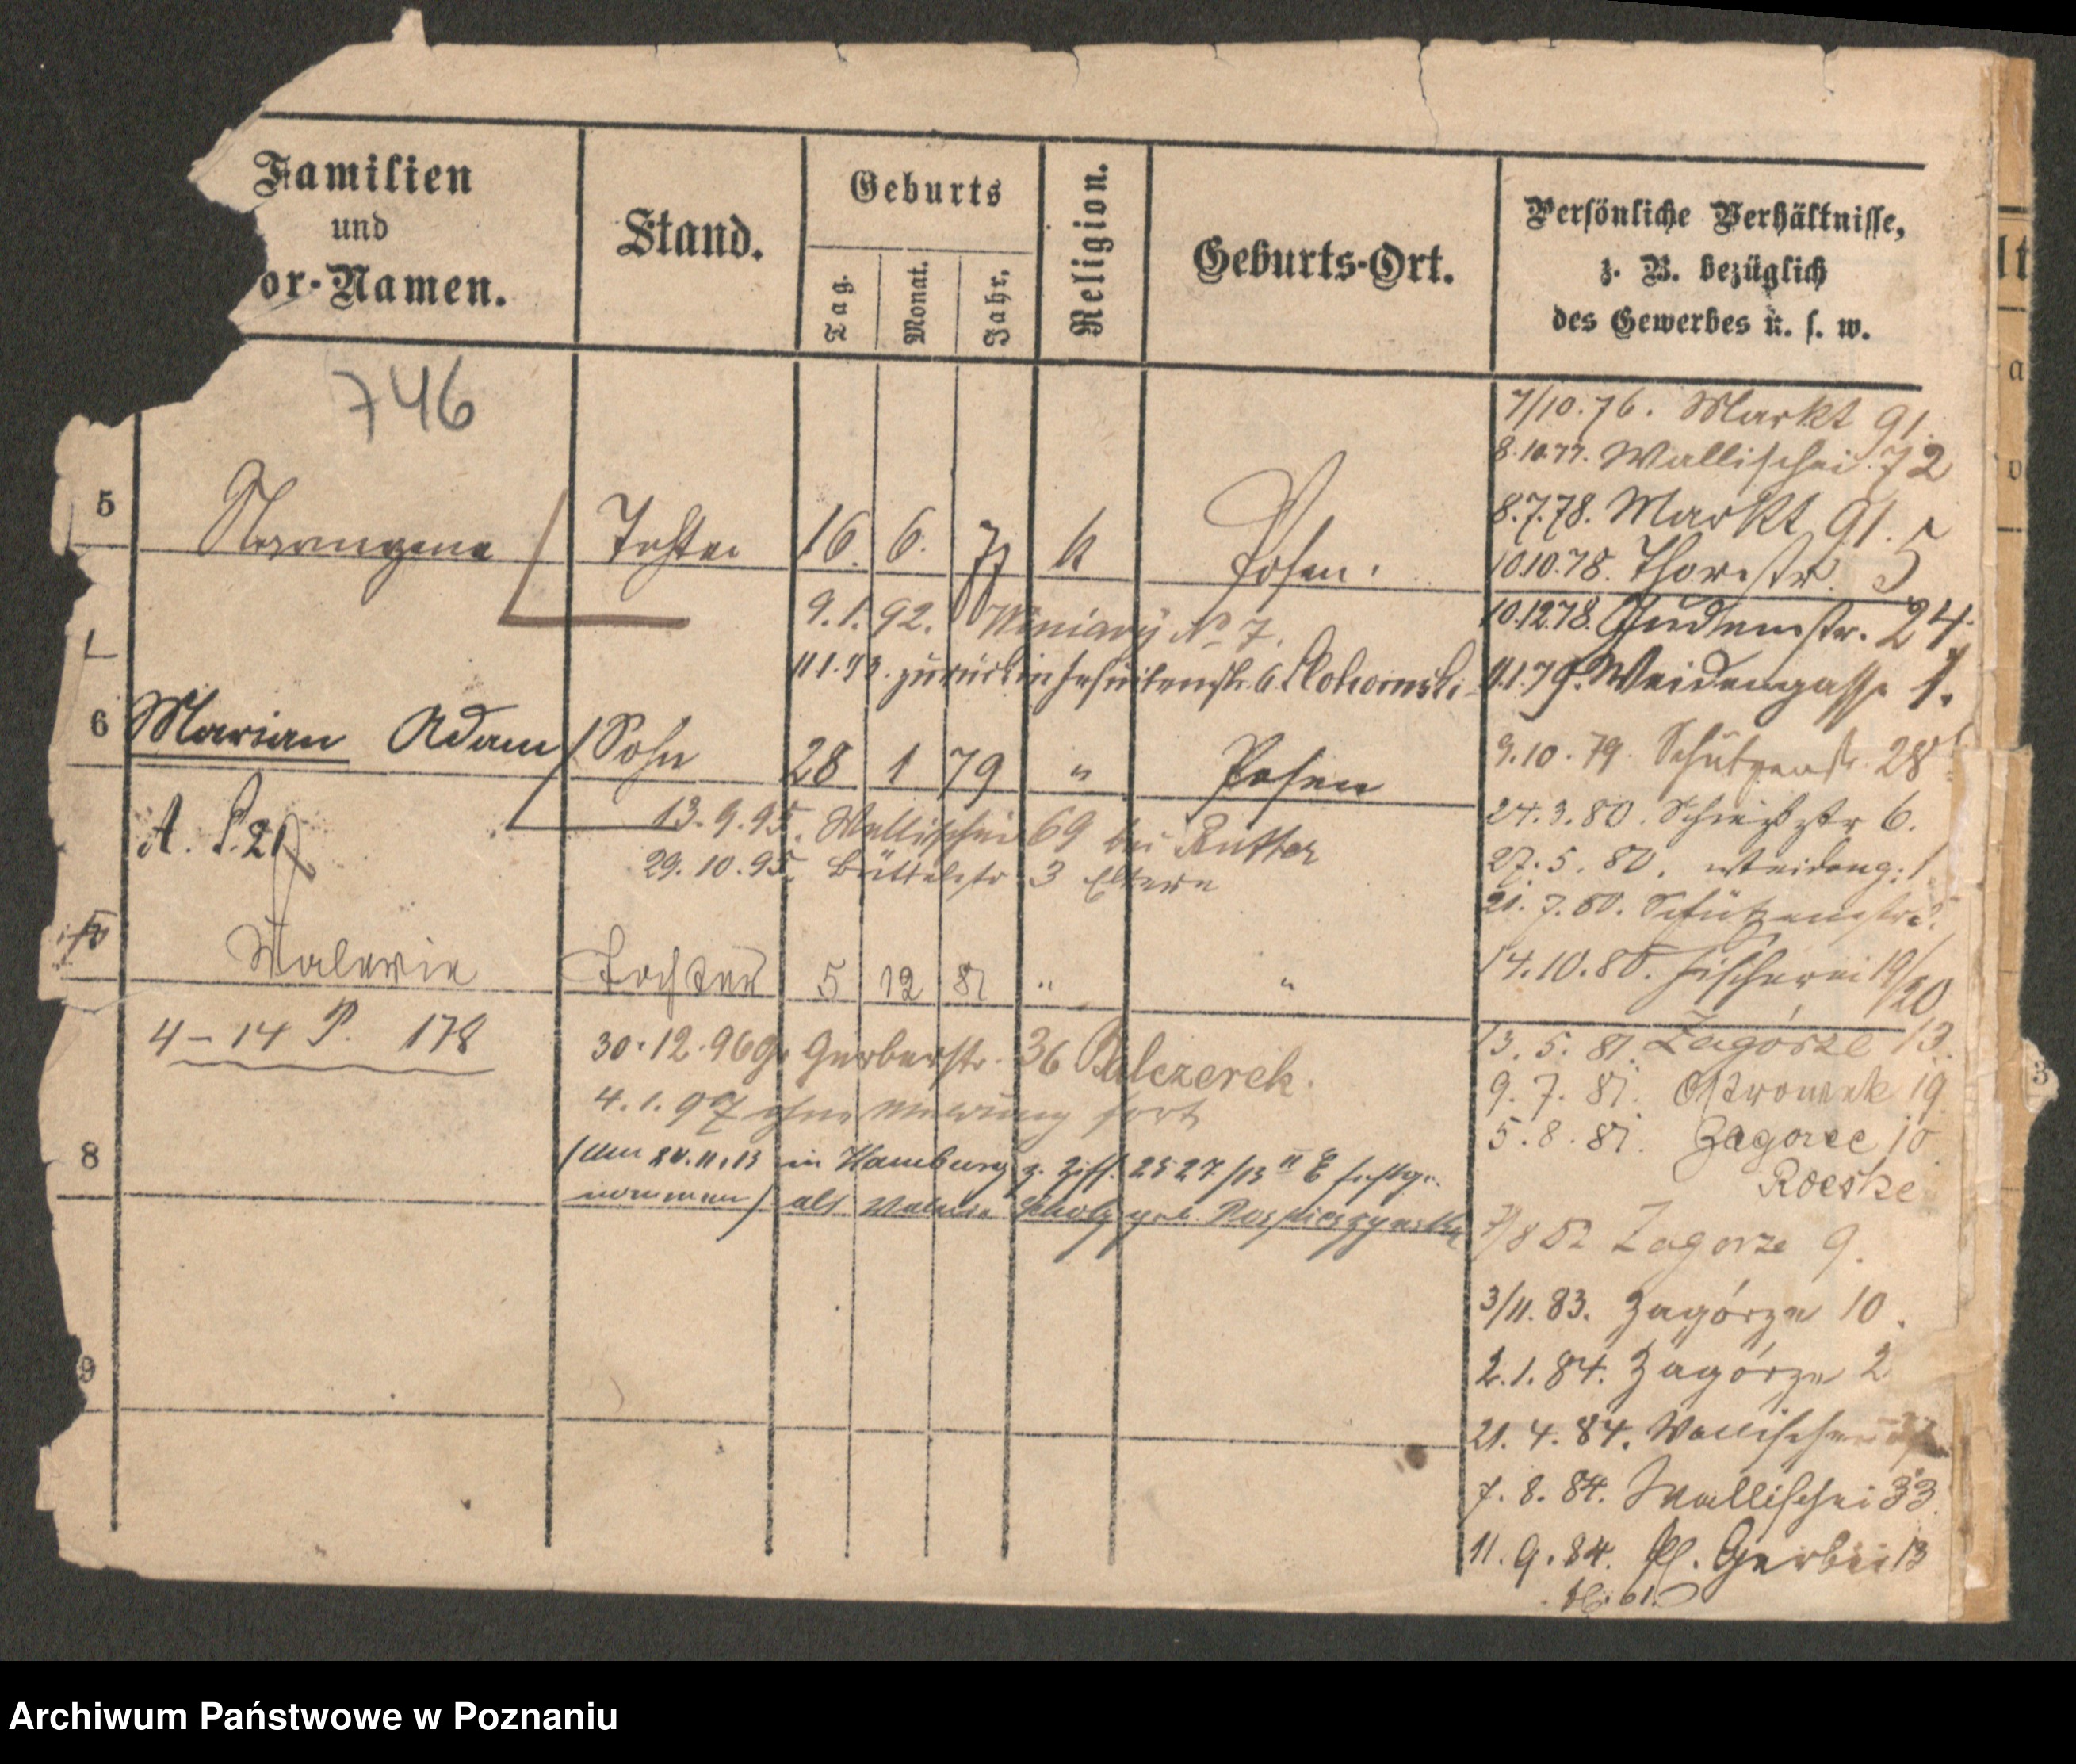 Familien
und
or-Namen.
Stand.
Geburts
Tag.
Monat.
Jahr.
Religion.
Geburts-Ort.
Persönliche Verhältnisse,
z. B. bezüglich
des Gewerbes u. s. w.
746
7/10.76. Markt 91.
8.10.77. Wallischei 72
8.7.78. Markt 91.
10.10.78. Thorstr. 5
10.12.78. Judenstr. 24.
11.1.79. Weidengasse 1.
9.10.79. Schützenstr. 28
24.3.80. Schießstr 6.
27.5.80. Weideng. 1
21.7.80. Schützenstr.
14.10.80. Fischerei 19/20
13.5.81. Zagórze 13.
9.7.81. Ostrowek 19.
5.8.81. Zagorze 10
Roeske
Zagorze 9.
3/11.83. Zagórze 10.
2.1.84. Zagórze 2
21.4.84. Wallischei
7.8.84. Wallischei 33.
11.9.84. Kl. Gerberstr 13
5 Tochter 16. 6. 77 k Posen.
9.1.92. Winiary No 7.
11.1.93. zurück in Jesuitenstr. 6
6 Marian Adam Sohn 28 1 79 " Posen
13.9.95. Wallischei 69 bei Rutter
29.10.95. Büttelstr 3 Eltern
A. P. 21
Valerie Tochter 5 12 81 " "
4-14 P. 178
30.12.96 Gr Gerberstr. 36 Balczerek.
4.1.97 ohne Meldung fort
8
in Hamburg z. Ziff. 2527/13 II E festge-
nommen) als Valerie Scholz geb. Pospieszynska
9
Archiwum Państwowe w Poznaniu